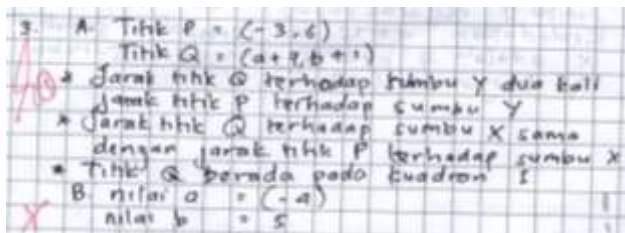 3 A. Titik P = (-3,6)
Titik Q = (a+9,b+1)
* Jarak titik Q terhadap sumbu Y dua kali
Jarak titik P terhadap sumbu Y
* Jarak titik Q terhadap sumbu X sama
dengan jarak titik P terhadap sumbu X
* Titik Q berada pada kuadran I
B. nilai a = (-4)
nilai b = 5